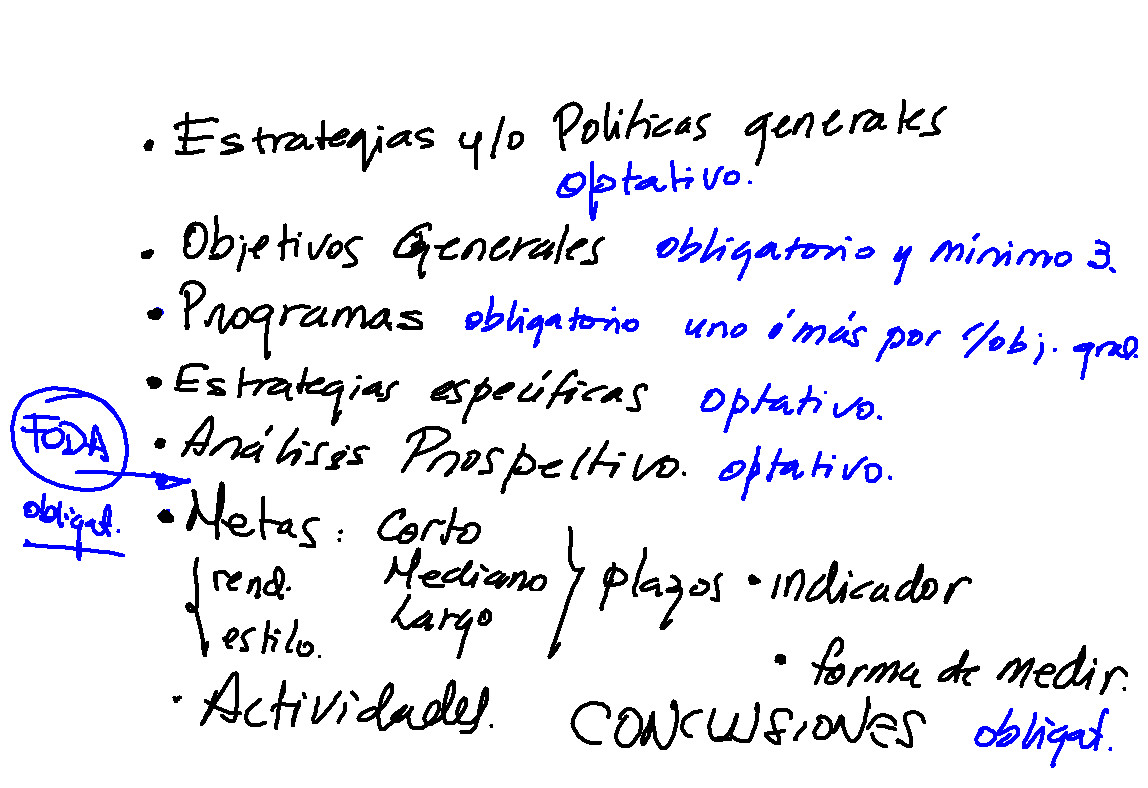 • Estrategias y/o Políticas generales
optativo.
• Objetivos Generales obligatorio y mínimo 3.
• Programas obligatorio uno ó más por c/obj. gral.
• Estrategias específicas optativo.
FODA
• Análisis Prospectivo. optativo.
obligat.
• Metas: Corto
rend. Mediano plazos • indicador
Largo
estilo.
• forma de medir.
• Actividades. CONCLUSIONES obligat.